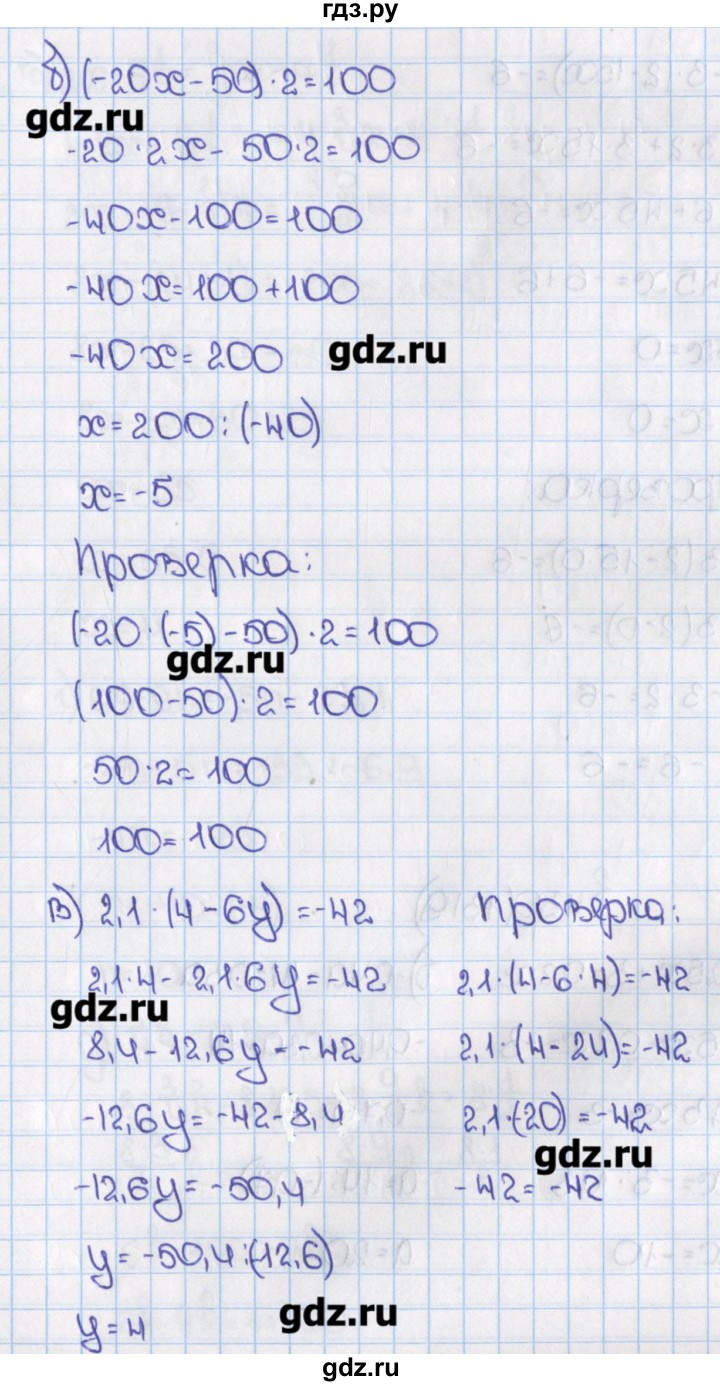 гдз.ру
б) (-20x - 50) · 2 = 100
gdz.ru
-20 · 2x - 50 · 2 = 100
-40x - 100 = 100
-40x = 100 + 100
-40x = 200
gdz.ru
x = 200 : (-40)
x = -5
Проверка:
(-20 · (-5) - 50) · 2 = 100
gdz.ru
(100 - 50) · 2 = 100
50 · 2 = 100
100 = 100
в) 2,1 · (4 - 6y) = -42
2,1 · 4 - 2,1 · 6y = -42
gdz.ru
8,4 - 12,6y = -42
-12,6y = -42 - 8,4
-12,6y = -50,4
y = -50,4 : (-12,6)
y = 4
Проверка:
2,1 · (4 - 6 · 4) = -42
2,1 · (4 - 24) = -42
2,1 · (-20) = -42
gdz.ru
-42 = -42
gdz.ru
gdz.ru